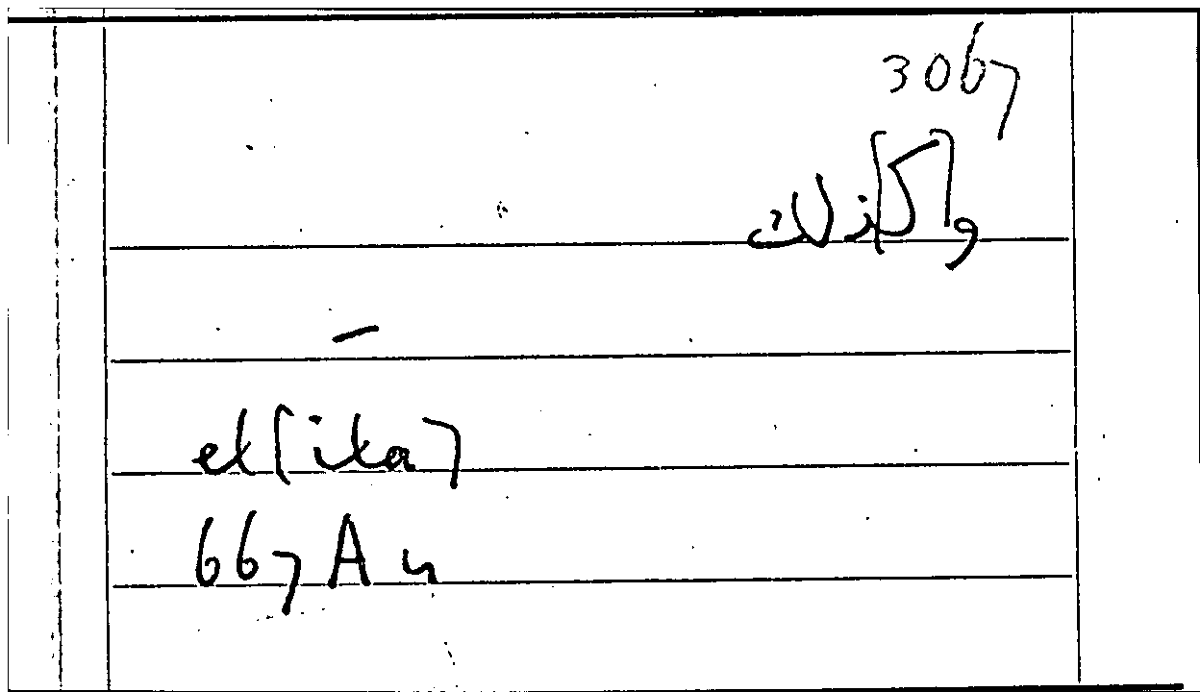 3067
و[ك]ذلك
–
et [ita]
667 A 4